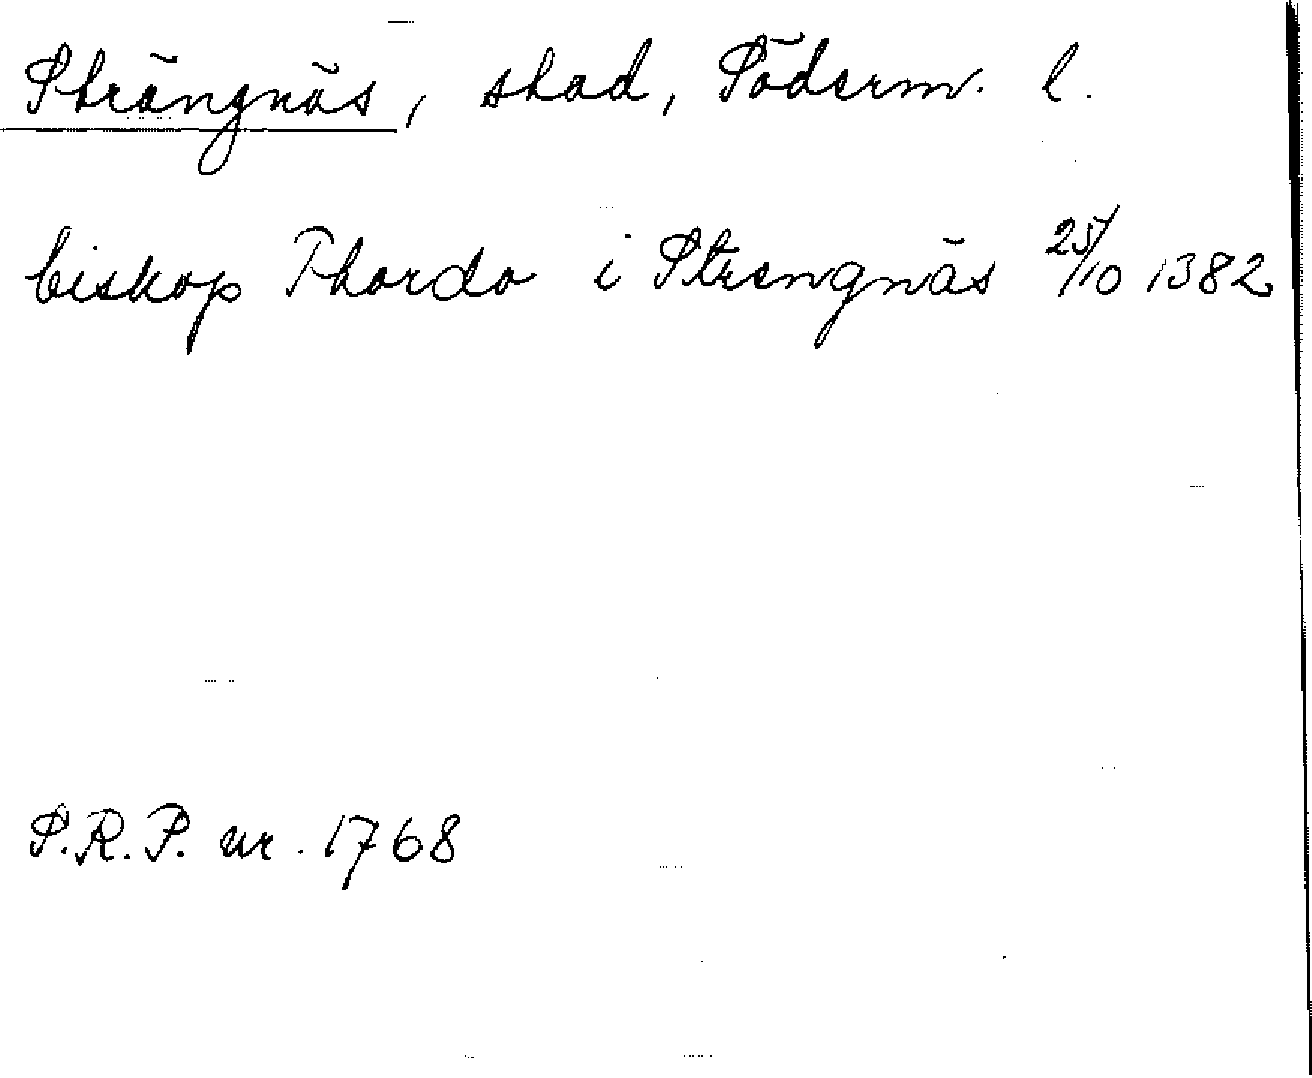 Strängnäs, stad, Söderm. l.
biskop Thordo i Strengnäs 25/10 1382
S.R.P. nr. 1768